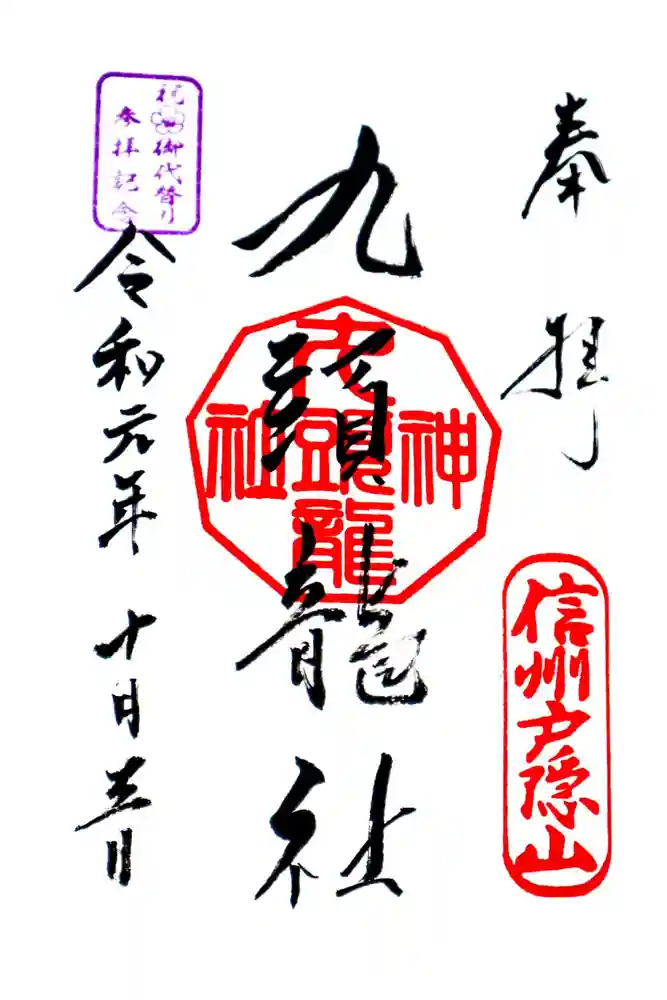 奉拝
信州戸隠山
九頭龍社
九頭龍
神
社
祝 御代替り
参拝記念
令和元年 十月 三日